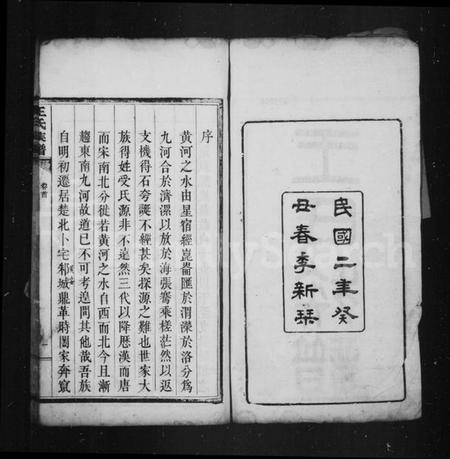 民國二年癸
丑春季新琹
序
黃河之水由星宿經崑崙匯於渭濼於洛分為
九河合於濟漯以放於海張騫乘槎茫然以返
支機得石夸誕不經甚矣探源之難也世家大
族得姓受氏源非不遠然三代以降歷漢而唐
而宋南北分徙若黃河之水自西而北今且漸
趨東南九河故道已不可考遑問其他哉吾族
自明初遷居楚北卜宅邾城鼎革時闔家奔竄
王氏宗譜
卷首